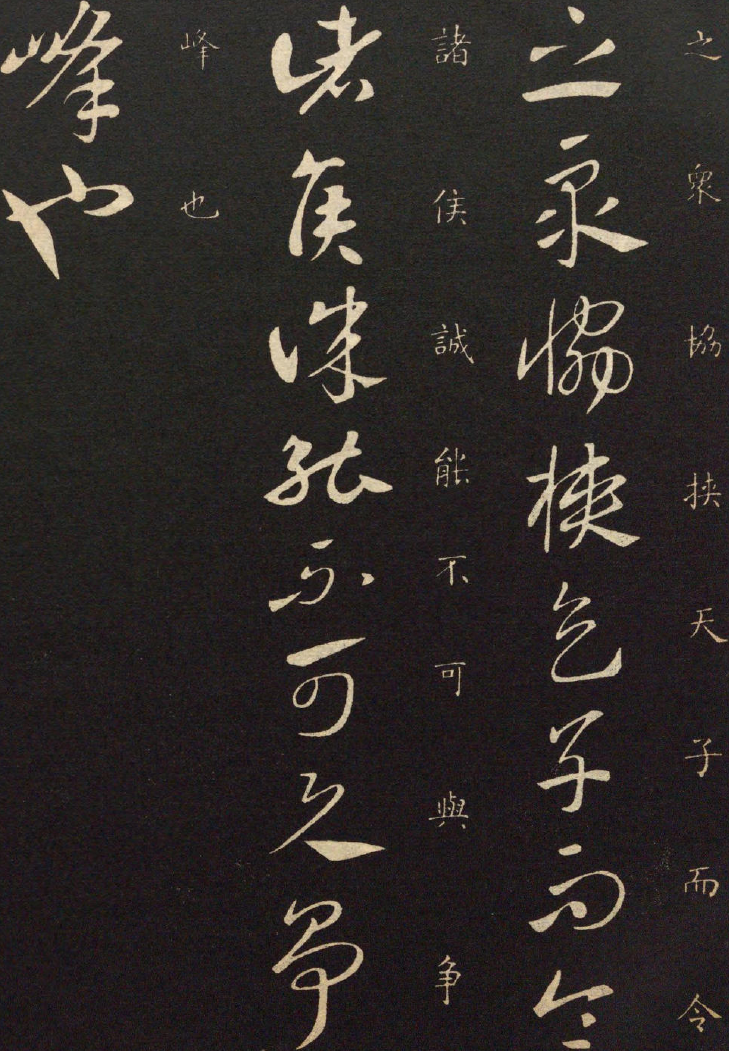 之衆協挟天子而令
之衆恊挟天子而令
諸侯誠能不可與争
諸侯誠能不可与争
峰也
峰也